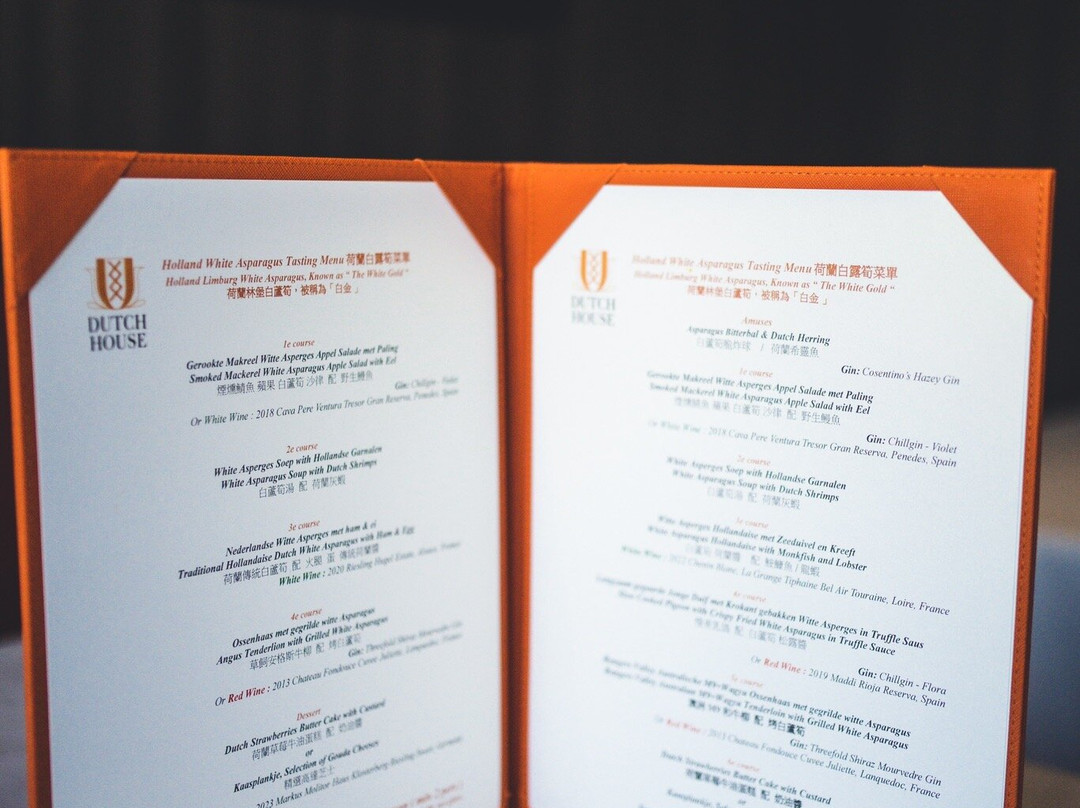 DUTCH
HOUSE
Holland White Asparagus Tasting Menu 荷蘭白露筍菜單
Holland Limburg White Asparagus, Known as “ The White Gold “
荷蘭林堡白蘆筍，被稱為「白金 」
1e course
Gerookte Makreel Witte Asperges Appel Salade met Paling
Smoked Mackerel White Asparagus Apple Salad with Eel
煙燻鯖魚 蘋果 白蘆筍 沙律 配 野生鰻魚
Gin: Chillgin - Violet
Or White Wine : 2018 Cava Pere Ventura Tresor Gran Reserva, Penedes, Spain
2e course
White Asperges Soep with Hollandse Garnalen
White Asparagus Soup with Dutch Shrimps
白蘆筍湯 配 荷蘭灰蝦
3e course
Nederlandse Witte Asperges met ham & ei
Traditional Hollandaise Dutch White Asparagus with Ham & Egg
荷蘭傳統白蘆筍 配 火腿 蛋 傳統荷蘭醬
White Wine : 2020 Riesling Hugel Estate, Alsace, France
4e course
Ossenhaas met gegrilde witte Asparagus
Angus Tenderlion with Grilled White Asparagus
草飼安格斯牛柳 配 烤白蘆筍
Gin: Threefold Shiraz Mourvedre Gin
Or Red Wine : 2013 Chateau Fondouce Cuvee Juliette, Lanquedoc, France
Dessert
Dutch Strawberries Butter Cake with Custard
荷蘭草莓牛油蛋糕 配 奶油醬
or
Kaasplankje, Selection of Gouda Cheeses
精選高達芝士
2023 Markus Molitor Haus Klosterberg Riesling
DUTCH
HOUSE
Holland White Asparagus Tasting Menu 荷蘭白露筍菜單
Holland Limburg White Asparagus, Known as “ The White Gold “
荷蘭林堡白蘆筍，被稱為「白金 」
Amuses
Asparagus Bitterbal & Dutch Herring
白蘆筍炸球 / 荷蘭希靈魚
Gin: Cosentino's Hazey Gin
1e course
Gerookte Makreel Witte Asperges Appel Salade met Paling
Smoked Mackerel White Asparagus Apple Salad with Eel
煙燻鯖魚 蘋果 白蘆筍 沙律 配 野生鰻魚
Gin: Chillgin - Violet
Or White Wine : 2018 Cava Pere Ventura Tresor Gran Reserva, Penedes, Spain
2e course
White Asperges Soep with Hollandse Garnalen
White Asparagus Soup with Dutch Shrimps
白蘆筍湯 配 荷蘭灰蝦
3e course
Witte Asperges Hollandaise met Zeeduivel en Kreeft
White Asparagus Hollandaise with Monkfish and Lobster
白蘆筍 荷蘭醬 配 鮟鱇魚 / 龍蝦
White Wine : Chenin Blanc, La Grange Tiphaine Bel Air Touraine, Loire, France
4e course
gegaarde Jonge Duif met Krokant gebakken Witte Asperges in Truffle Saus
Slow Cooked Pigeon with Crispy Fried White Asparagus in Truffle Sauce
慢煮乳鴿 配 白蘆筍 松露醬
Gin: Chillgin - Flora
Or Red Wine : 2019 Maddi Rioja Reserva, Spain
5e course
Rangers Valley Australische M9+Wagyu Ossenhaas met gegrilde witte Asparagus
Rangers Valley Australian M9+Wagyu Tenderloin with Grilled White Asparagus
澳洲 M9 和牛柳 配 烤白蘆筍
Gin: Threefold Shiraz Mourvedre Gin
Or Red Wine : 2013 Chateau Fondouce Cuvee Juliette, Lanquedoc, France
Dutch Strawberries Butter Cake with Custard
荷蘭草莓牛油蛋糕 配 奶油醬
or
Kaasplankje,